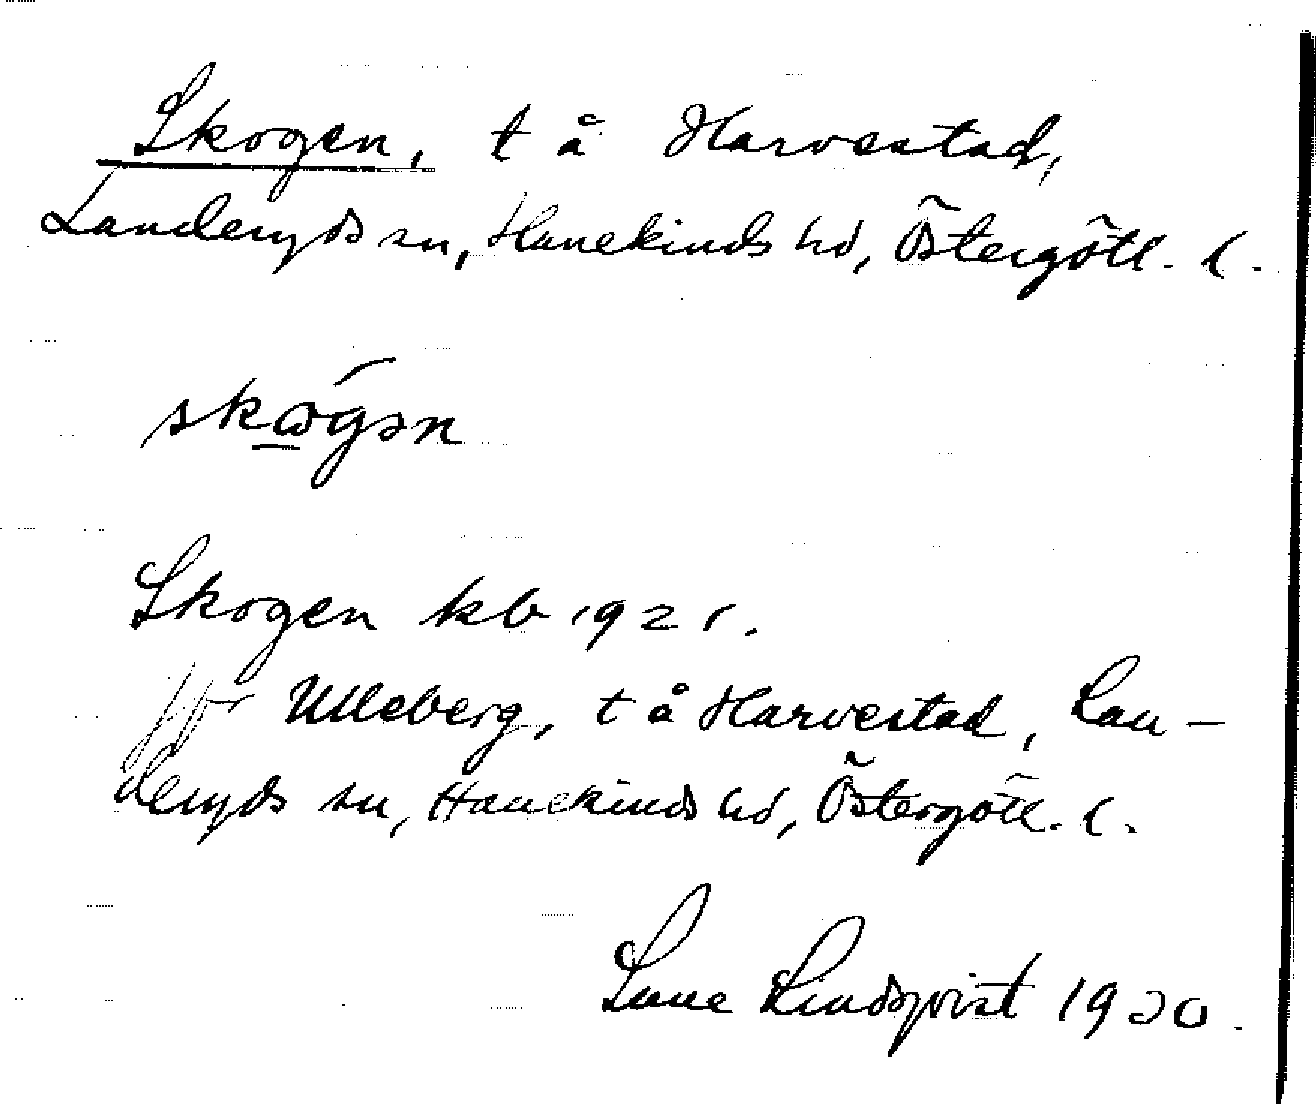 Skogen, t å Harvestad,
Landeryds sn, Hanekinds hd, Östergötl. l.
skωgən
Skogen kb 1921.
jfr Ulleberg, t å Harvestad, Lan-
deryds sn, Hanekinds hd, Östergötl. l.
Sune Lindqvist 1920.